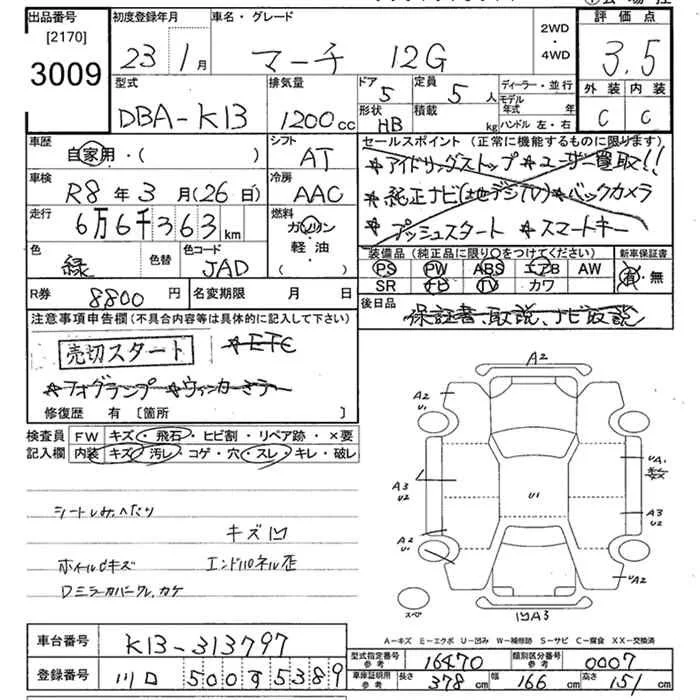 出品番号
[2170]
3009
初度登録年月
23年1月
車名・グレード
マーチ 12G
2WD
・
4WD
評価点
3.5
外装 内装
C C
型式
DBA-K13
排気量
1200cc
ドア
5
形状
HB
定員
5人
積載
kg
ディーラー・並行
モデル年式 年
ハンドル 左・右
車歴
自家用・( )
シフト
AT
車検
R8年3月(26日)
冷房
AAC
走行
6万6千363km
燃料
ガソリン
軽・油
( )
色
緑
色替
色コード
JAD
R券
8800円
名変期限 月 日
セールスポイント(正常に機能するものに限ります)
☆アイドリングストップ ☆ユーザー買取!!
☆純正ナビ(地デジTV)☆バックカメラ
☆プッシュスタート ☆スマートキー
装備品(純正品に限り○をつけてください)
新車保証書
PS PW ABS エアB AW
SR ナビ TV カワ
有・無
後日品
保証書、取説、ナビ取説
注意事項申告欄(不具合内容等は具体的に記入して下さい)
売切スタート
☆ETC
☆フォグランプ ☆ウィンカーミラー
修復歴 有[箇所 ]
検査員
記入欄
FW キズ・飛石・ヒビ割・リペア跡・×要
内装 キズ・汚レ・コゲ・穴・スレ・キレ・破レ
シートしみ、へたり
キズ凹
ホイールキズ
エンドパネル歪
Dミラーカバークレ、カケ
A2
A2
U1
UA1
A3
U2
U1
A3
U2
A2
U1
UA2
凹A3
スペア
A-キズ E-エクボ U-凹み W-補修跡 S-サビ C-腐食 XX-交換済
車台番号
K13-313797
登録番号
川口500す5389
型式指定番号
参考
16470
類別区分番号
参考
0007
車庫証明用
参考
長さ
378cm
幅
166cm
高さ
151cm